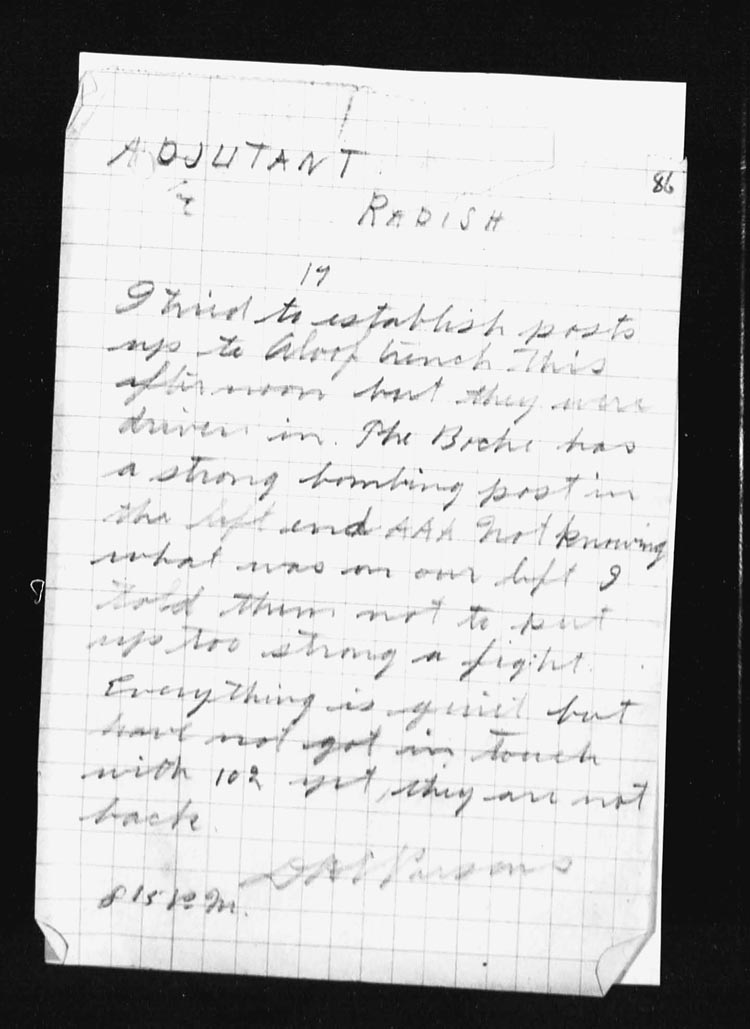 ADJUTANT
86
RADISH
17
I tried to establish posts
up to Aloof trench this
afternoon but they were
driven in. The Boche has
a strong bombing post in
the left end AAA Not knowing
what was on our left I
told them not to put
up too strong a fight.
Everything is quiet but
have not got in touch
with 102 yet, they are not
back.
Parsons
8 15 P.M.